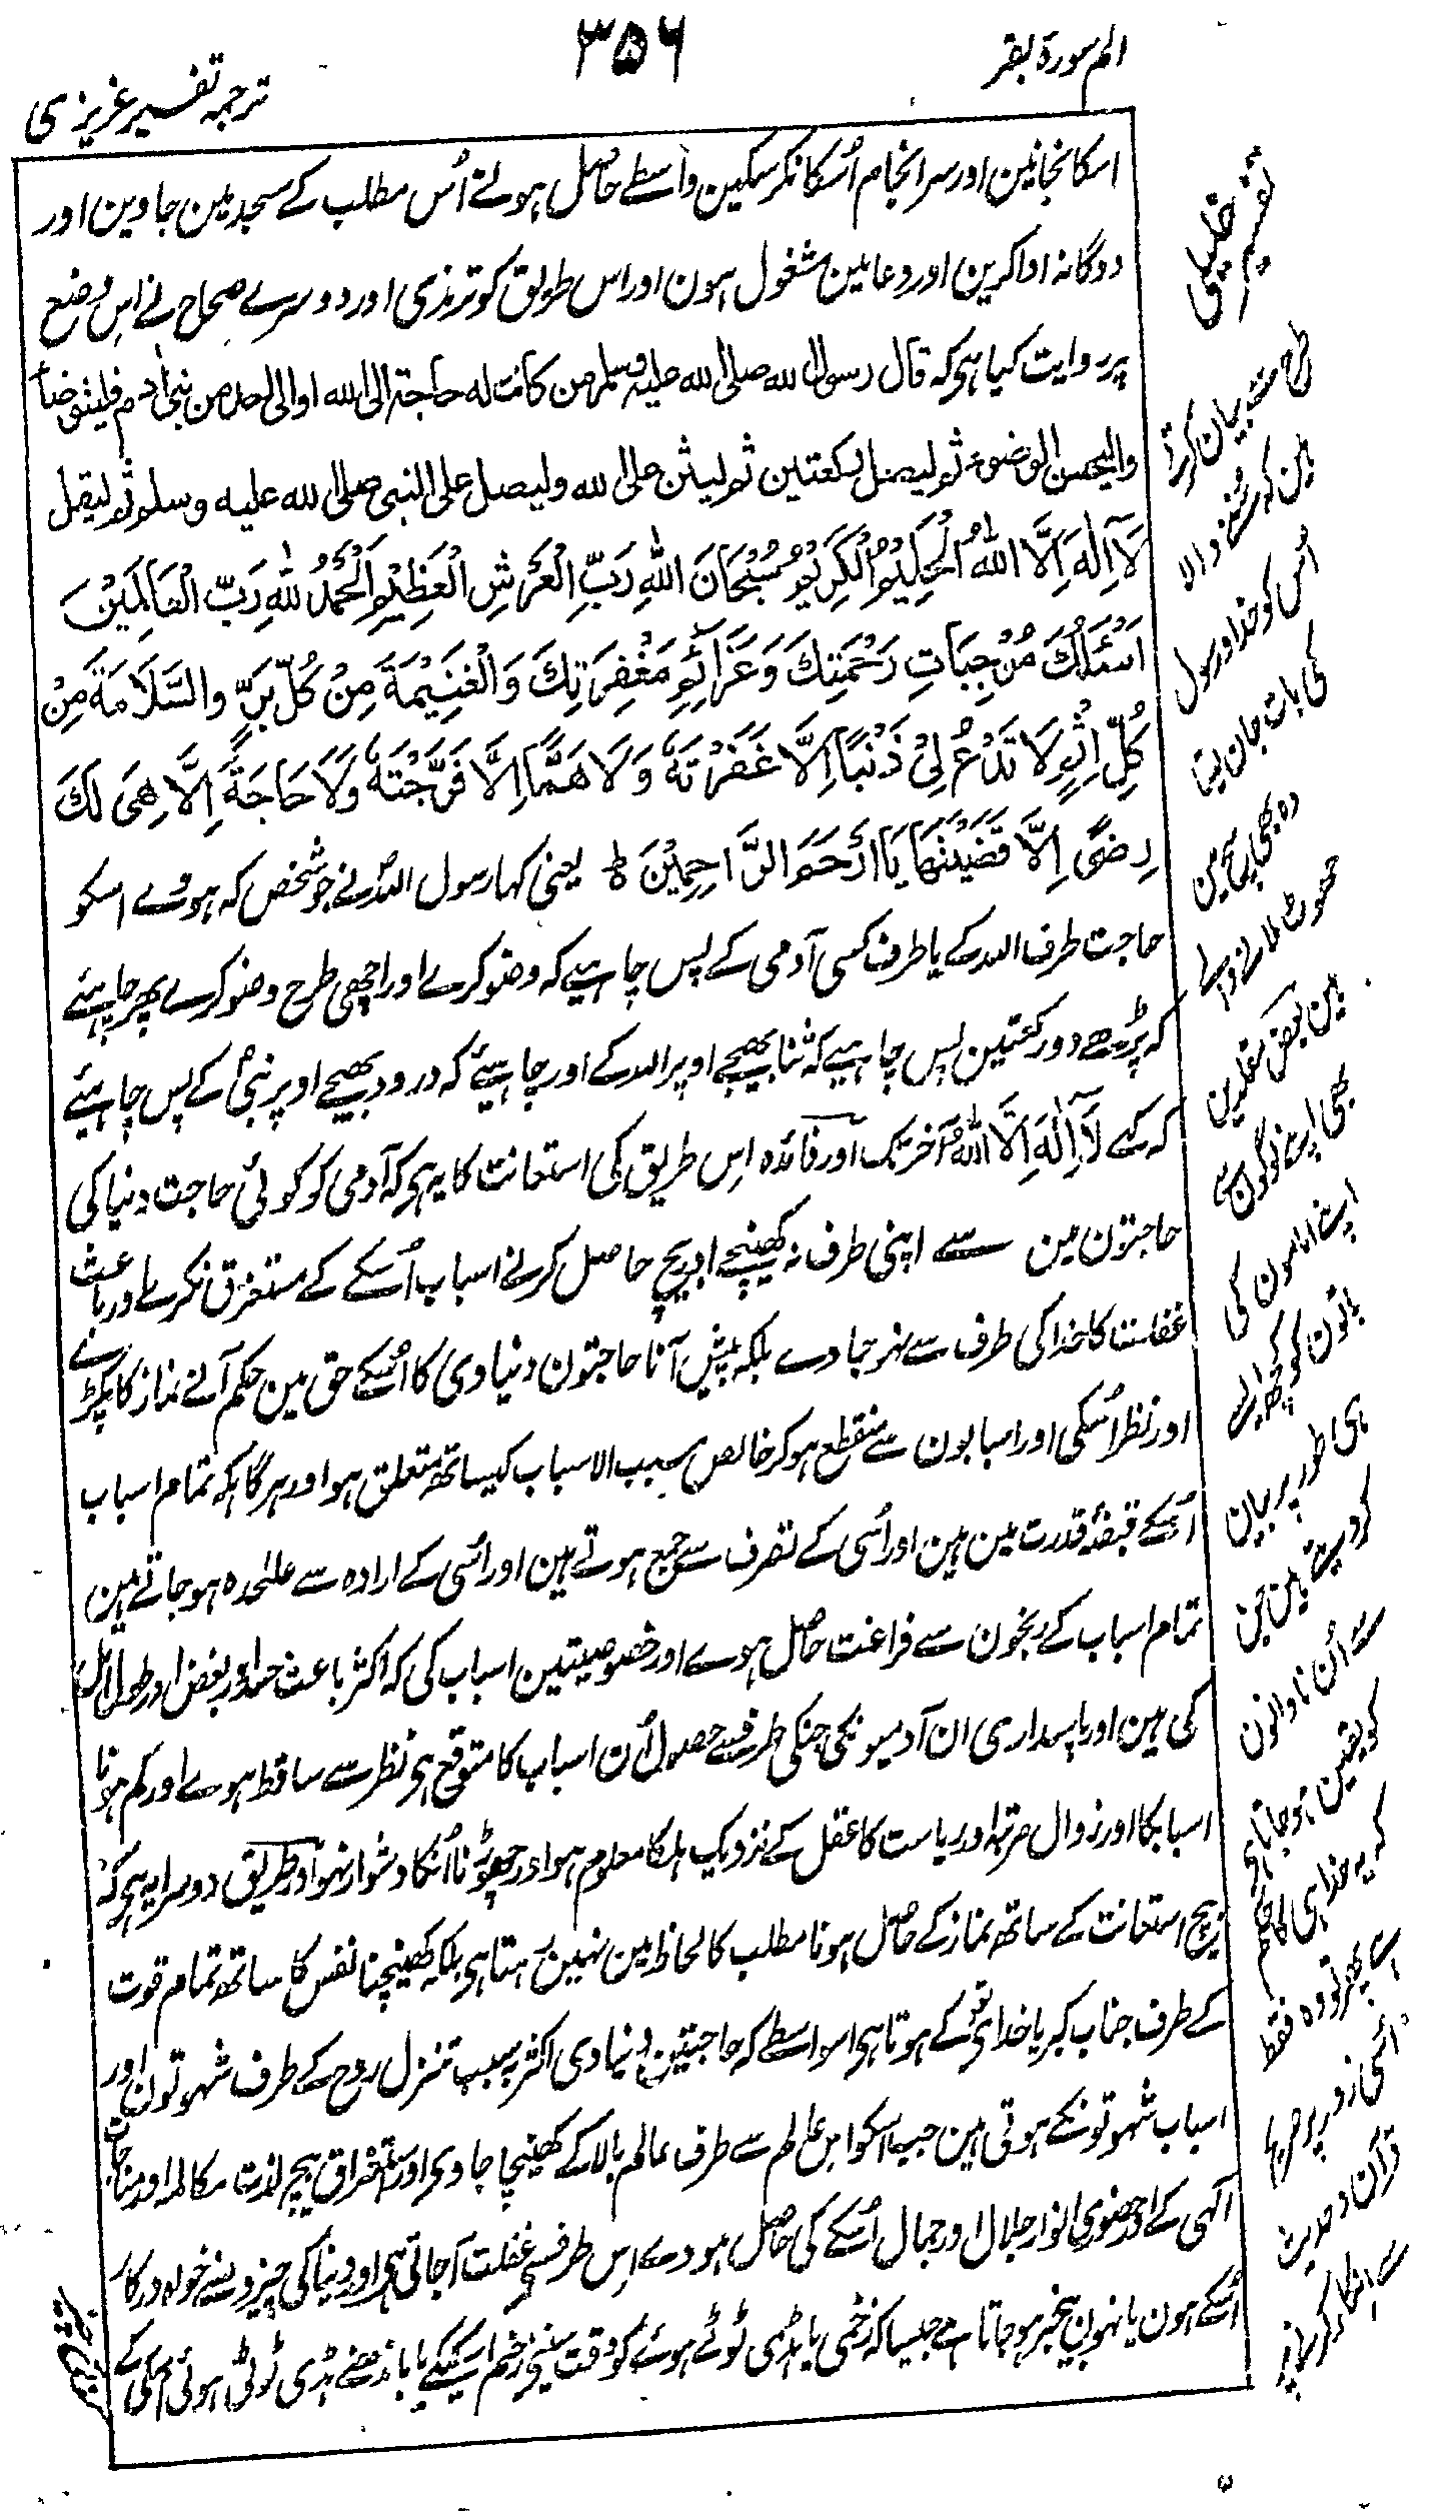 الم سورۃ بقر
۳۵۶
ترجمہ تفسیر عزیزی
اسکا نجانین اور سرانجام اُسکا نکر سکین واسطے حاصل ہونے اُس مطلب کے مسجد مین جاوین اور
دوگانہ ادا کرین اور دعا مین مشغول ہون اور اس طریق کو ترمذی اور دوسرے صحاح نے اس وضع
پر روایت کیا ہی کہ قال رسول الله صلی الله علیہ وسلم من کانت له حاجة الی الله او الی احد من بنی اٰدم فلیتوضأ
والیحسن الوضوء ثم لیصل رکعتین ثم لیثن علی الله ولیصل علی النبی صلی الله علیه وسلم ثم لیقل
لَآ اِلٰهَ اِلَّا اللّٰهُ الْحَلِیْمُ الْکَرِیْمُ سُبْحَانَ اللّٰهِ رَبِّ الْعَرْشِ الْعَظِیْمِ اَلْحَمْدُ لِلّٰهِ رَبِّ الْعَالَمِیْنَ
اَسْئَلُكَ مُوْجِبَاتِ رَحْمَتِكَ وَعَزَائِمَ مَغْفِرَتِكَ وَالْغَنِیْمَةَ مِنْ کُلِّ بِرٍّ والسَّلَامَةَ مِنْ
کُلِّ اِثْمٍ لَا تَدَعْ لِیْ ذَنْبًا اِلَّا غَفَرْتَهٗ وَلَا هَمًّا اِلَّا فَرَّجْتَهٗ وَلَا حَاجَةً اِلَّا هِیَ لَكَ
رِضًی اِلَّا قَضَیْتَهَا یَا اَرْحَمَ الرَّاحِمِیْنَ ط یعنی کہا رسول اللہ نے جو شخص کہ ہووے اسکو
حاجت طرف اللہ کے یا طرف کسی آدمی کے پس چاہیے کہ وضو کرے اور اچھی طرح وضو کرے پھر چاہیئے
کہ پڑھے دو رکعتین پس چاہیے کہ ثنا بھیجے اوپر اللہ کے اور چاہیئے کہ درود بھیجے اوپر نبی کے پس چاہیئے
کہ کہے لَآ اِلٰهَ اِلَّا اللّٰهُ آخر تک اور فائدہ اِس طریق کی استعانت کا یہ ہی کہ آدمی کو کوئی حاجت دنیا کی
حاجتون مین سے اپنی طرف نہ کھینچے اور بیچ حاصل کرنے اسباب اُسکے کے مستغرق نکرے اور باعث
غفلت کا خدا کی طرف سے نہو جاوے بلکہ پیش آنا حاجتون دنیاوی کا اُسکے حق مین حکم آنے نماز کا پکڑے
اور نظر اُسکی اور اسبابون سے منقطع ہو کر خالص مسبب الاسباب کیساتھ متعلق ہو اور ہرگاہ کہ تمام اسباب
اُسکے قبضۂ قدرت مین ہین اور اُسی کے تصرف سے جمع ہوتے ہین اور اُسی کے ارادہ سے علٰحدہ ہو جاتے ہین
تمام اسباب کے رنجون سے فراغت حاصل ہوے اور خصوصیتین اسباب کی کہ اکثر باعث حسد اور بغض اور طول امل
کی ہین اور پاسداری ان آدمیونکی جنکی طرف سے حصول اُن اسباب کا متوقع ہی نظر سے ساقط ہوے اور کم ہونا
اسبابکا اور زوال مرتبہ اور ریاست کا عقل کے نزدیک ہلکا معلوم ہو اور چھوڑنا اُنکا دشوار نہو اور طریق دوسرا یہ ہی کہ
بیچ استعانت کے ساتھ نماز کے حاصل ہونا مطلب کا لحاظ مین نہین رہتا ہی بلکہ کھینچنا نفس کا ساتھ تمام قوت
کے طرف جناب کبریا خدای تعہ کے ہوتا ہی اسواسطے کہ حاجتین دنیاوی اکثر بسبب تنزل روح کے طرف شہوتون اور
اسباب شہوتونکے ہوتی ہین جب اسکو اس عالم سے طرف عالم بالا کے کھینچا جاوی اور استغراق بیچ لذت مکالمہ اور مناجات
الٰہی کے اور حضوری انوار جلال اور جمال اُسکے کی حاصل ہووے اِس طرف سے غفلت آجاتی ہی اور دنیا کی چیزوسے خواہ درکار
اُسکے ہون یا نہون بیخبر ہو جاتا ہے جیسا کہ زخمی یا ہڈی ٹوٹے ہوئے کو وقت سینے زخم اسکے یا باندھنے ہڈی ٹوٹی ہوئی اسکی کے
طرح سے بیان کرتے
ہین کہ سننے والا
اُس کو خدا و رسول
کی بات جان لیتا
ہین بعض مقلدین
بھی اپنے لوگون سے
اپنے امامون کی
باتون کو کچھ ایسے
ہی طور پر بیان
کر دیتے ہین جن
سے اُن نادانون
کو یقین ہو جاتا ہی
کہ یہ خدا ہی کا حکم
قرآن و حدیث